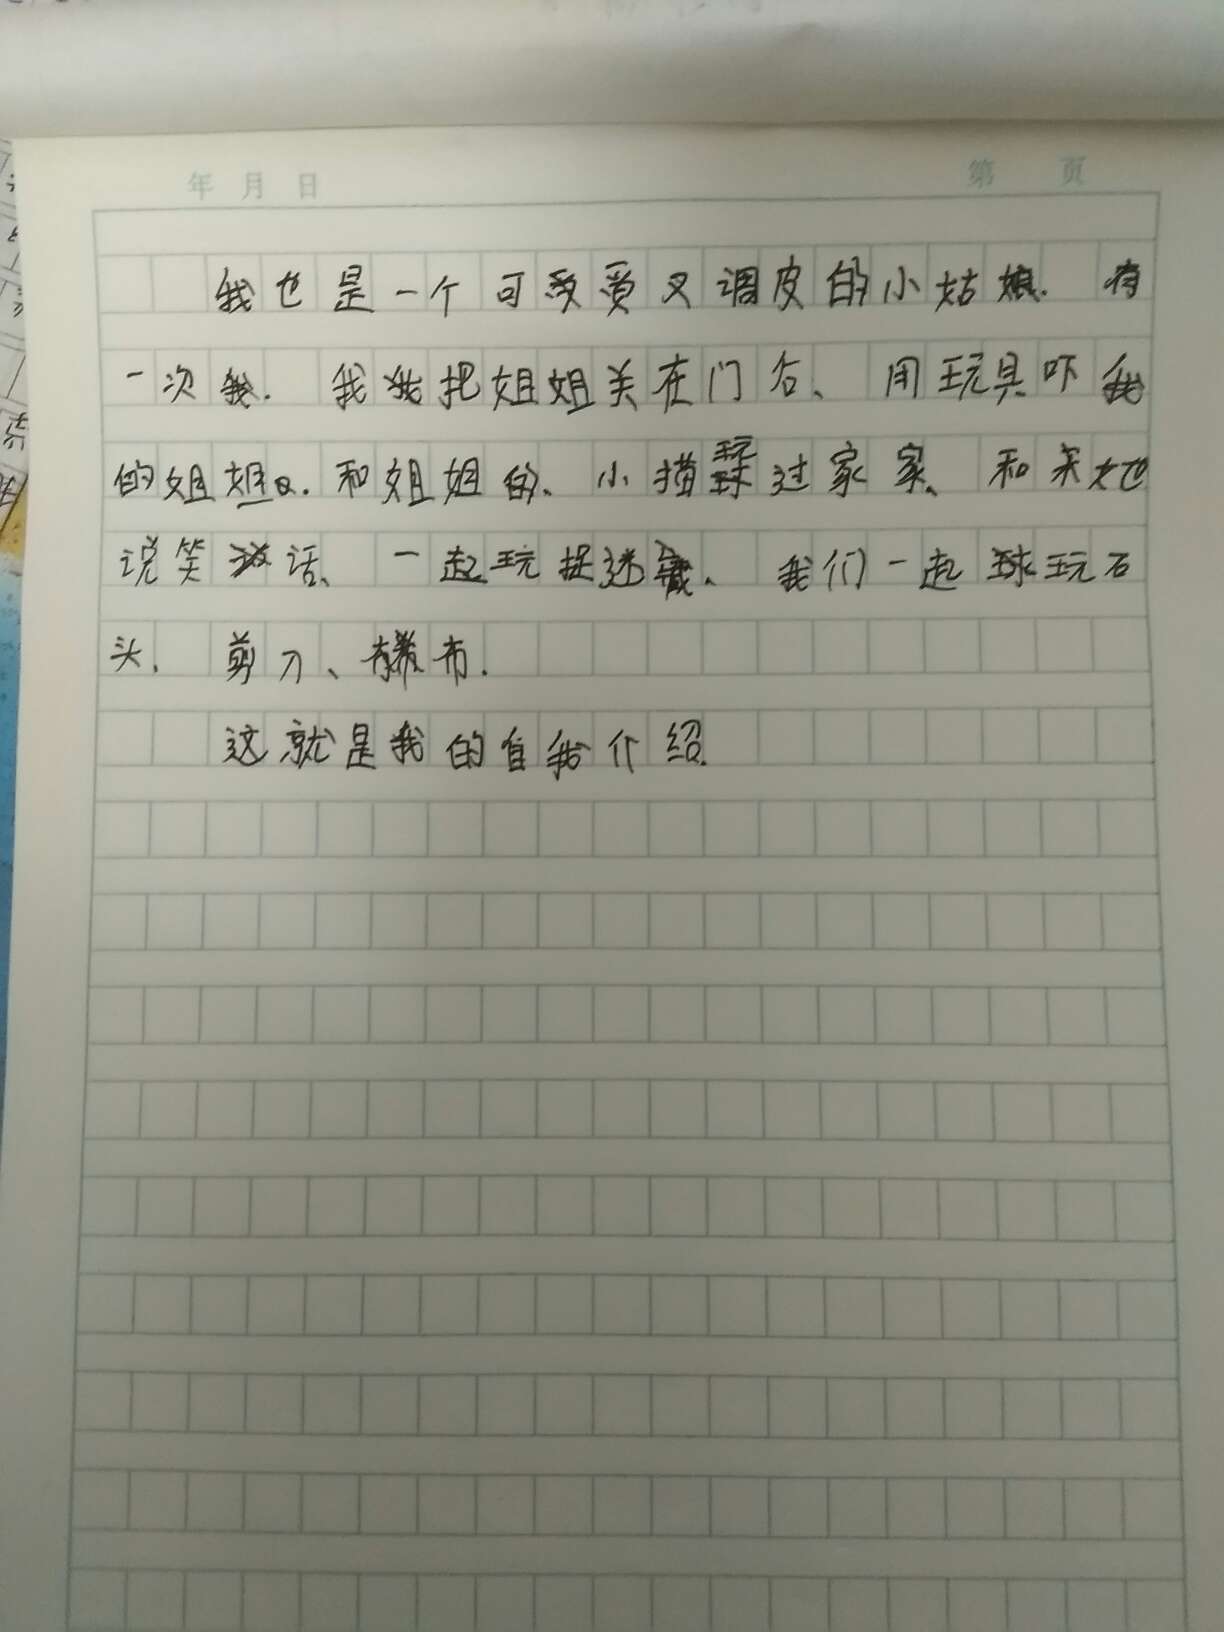 年 月 日 第 页
我也是一个可爱又调皮的小姑娘. 有
一次. 我把姐姐关在门后、用玩具吓我
的姐姐. 和姐姐的、小猫玩过家家、和她
说笑话、一起玩捉迷藏. 我们一起玩石
头. 剪刀、布.
这就是我的自我介绍.